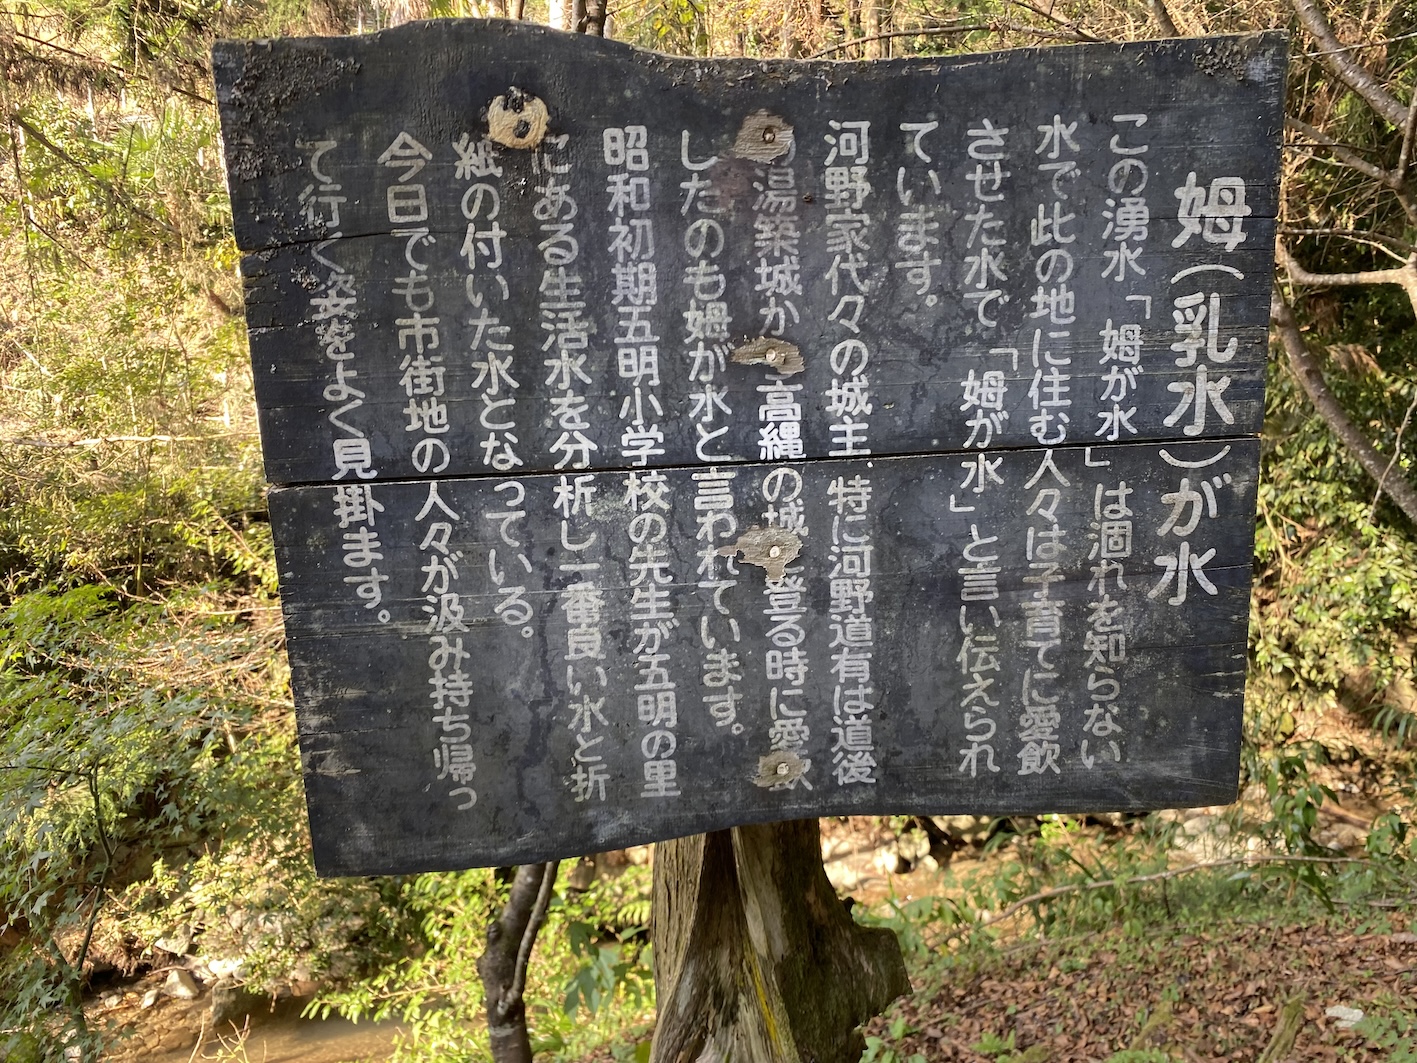 姆（乳水）が水
この湧水「姆が水」は涸れを知らない
水で此の地に住む人々は子育てに愛飲
させた水で「姆が水」と言い伝えられ
ています。
河野家代々の城主、特に河野道有は道後
湯築城か 高縄の城 登る時に愛飲
したのも姆が水と言われています。
昭和初期五明小学校の先生が五明の里
にある生活水を分析し一番良い水と折
紙の付いた水となっている。
今日でも市街地の人々が汲み持ち帰っ
て行く姿をよく見掛ます。